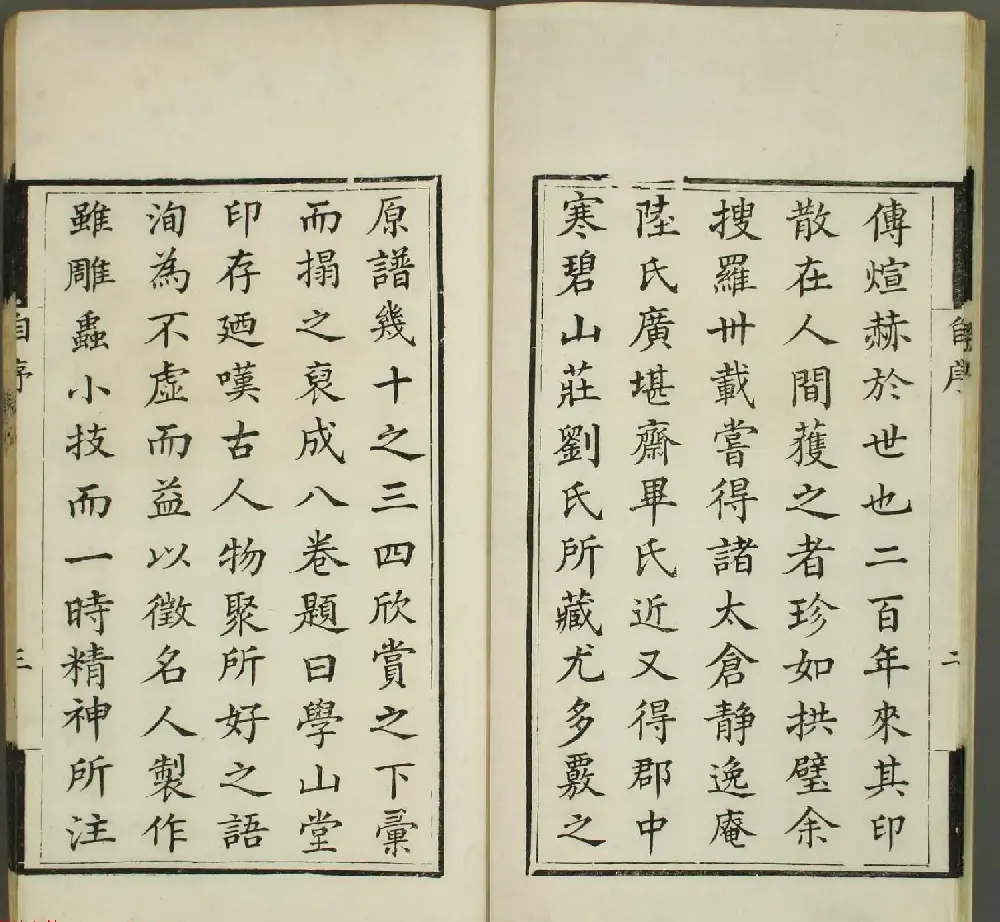 傳煊赫於世也二百年來其印
散在人間蒦之者珍如拱璧余
搜羅卅載嘗得諸太倉静逸庵
陸氏廣堪齋畢氏近又得郡中
寒碧山莊劉氏所藏尤多覈之
自序
二
原譜幾十之三四欣賞之下彙
而搨之裒成八卷題曰學山堂
印存廼嘆古人物聚所好之語
洵為不虛而益以徵名人製作
雖雕蟲小技而一時精神所注
自序
三